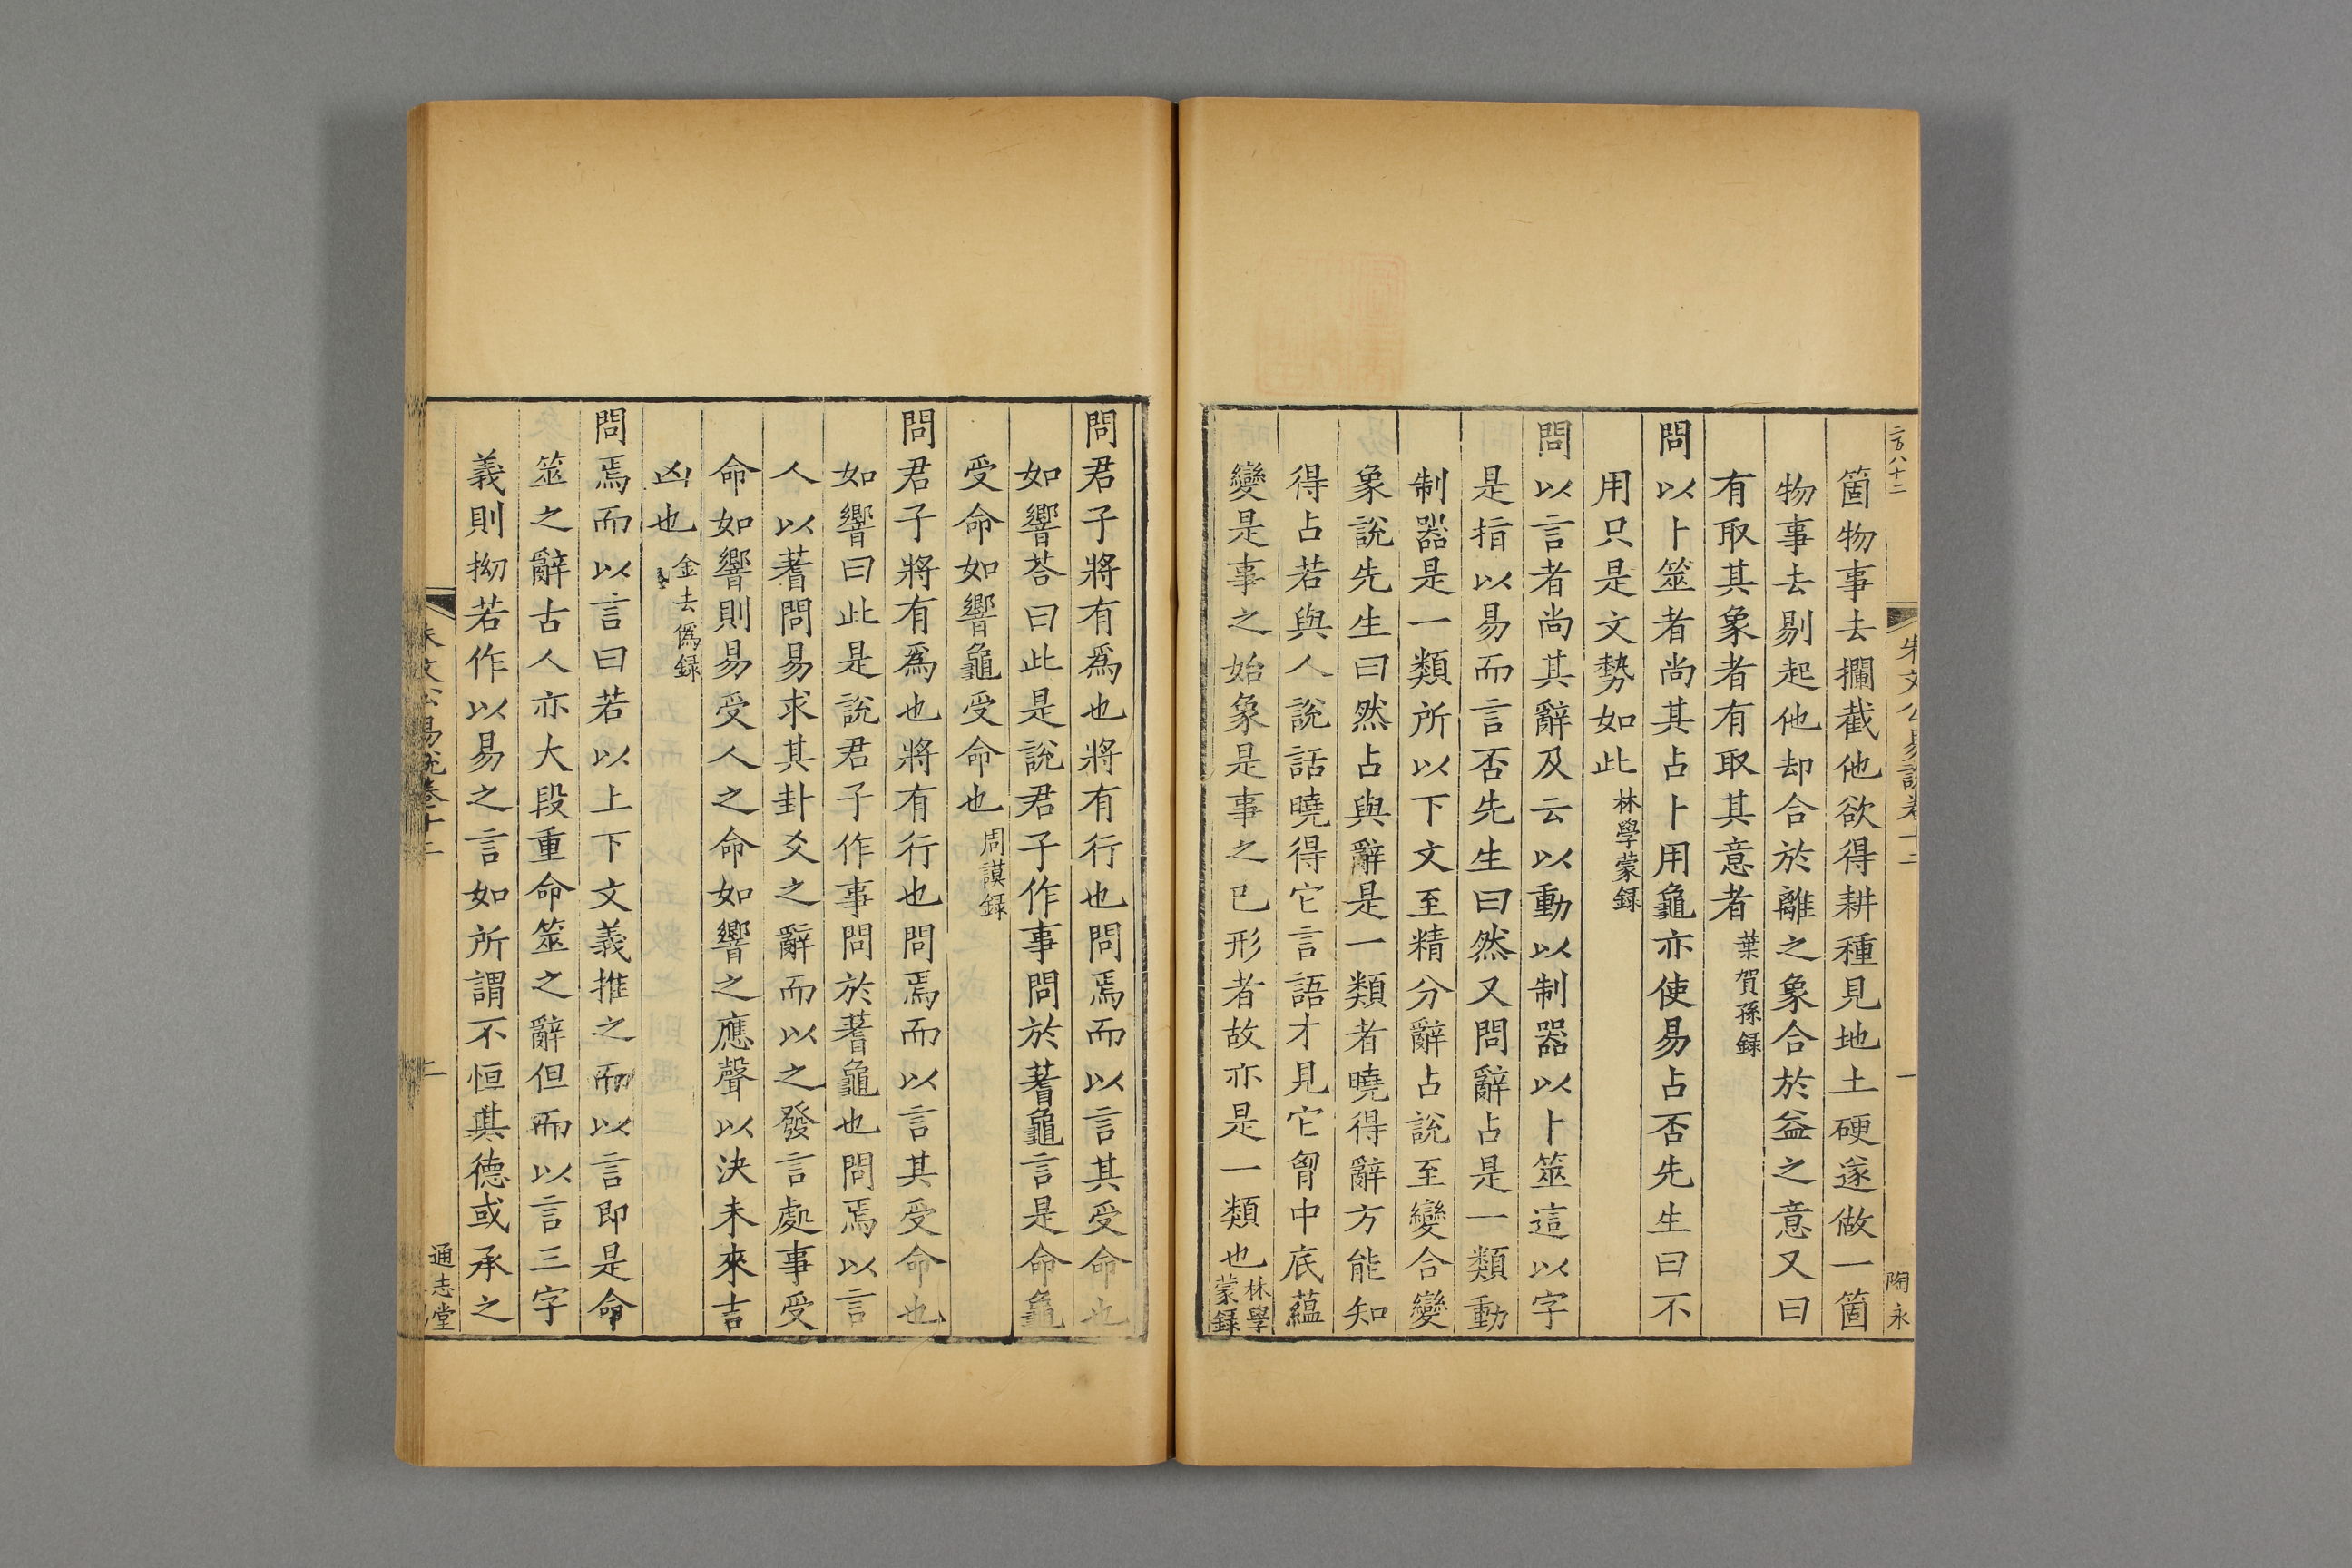 二百八十二
朱文公易說卷十二
一
陶永
箇物事去攔截他欲得耕種見地土硬遂做一箇
物事去剔起他却合於離之象合於益之意又曰
有取其象者有取其意者葉賀孫録
問以卜筮者尚其占卜用龜亦使易占否先生曰不
用只是文勢如此林學蒙録
問以言者尚其辭及云以動以制器以卜筮這以字
是指以易而言否先生曰然又問辭占是一類動
制器是一類所以下文至精分辭占說至變合變
象說先生曰然占與辭是一類者曉得辭方能知
得占若與人說話曉得它言語才見它胷中底蘊
變是事之始象是事之已形者故亦是一類也林學蒙録
問君子將有爲也將有行也問焉而以言其受命也
如響荅曰此是說君子作事問於蓍龜言是命龜
受命如響龜受命也周謨録
問君子將有爲也將有行也問焉而以言其受命也
如響曰此是說君子作事問於蓍龜也問焉以言
人以蓍問易求其卦爻之辭而以之發言處事受
命如響則易受人之命如響之應聲以決未來吉
凶也金去僞録
問焉而以言曰若以上下文義推之而以言即是命
筮之辭古人亦大段重命筮之辭但而以言三字
義則拗若作以易之言如所謂不恒其德或承之
朱文公易說卷十二
二
通志堂